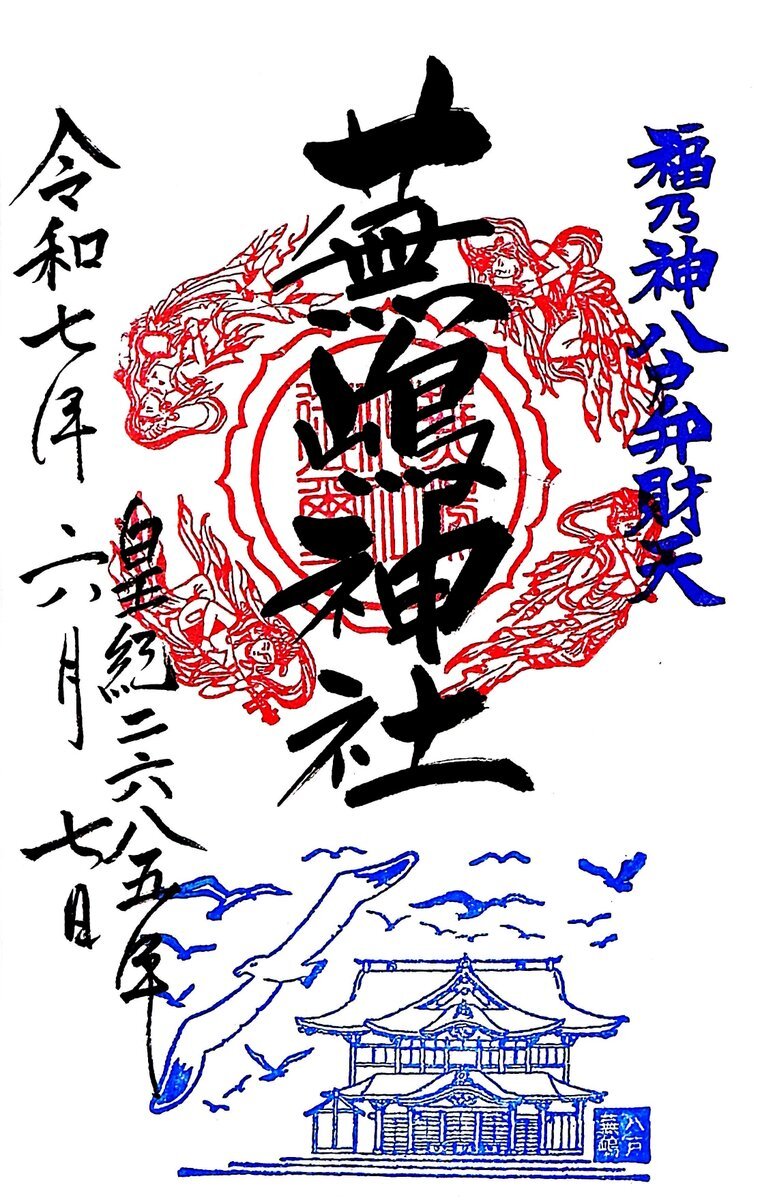 福乃神八戸弁財天
蕪嶋神社
皇紀二六八五年
令和七年 六月 七日
八戸
蕪嶋